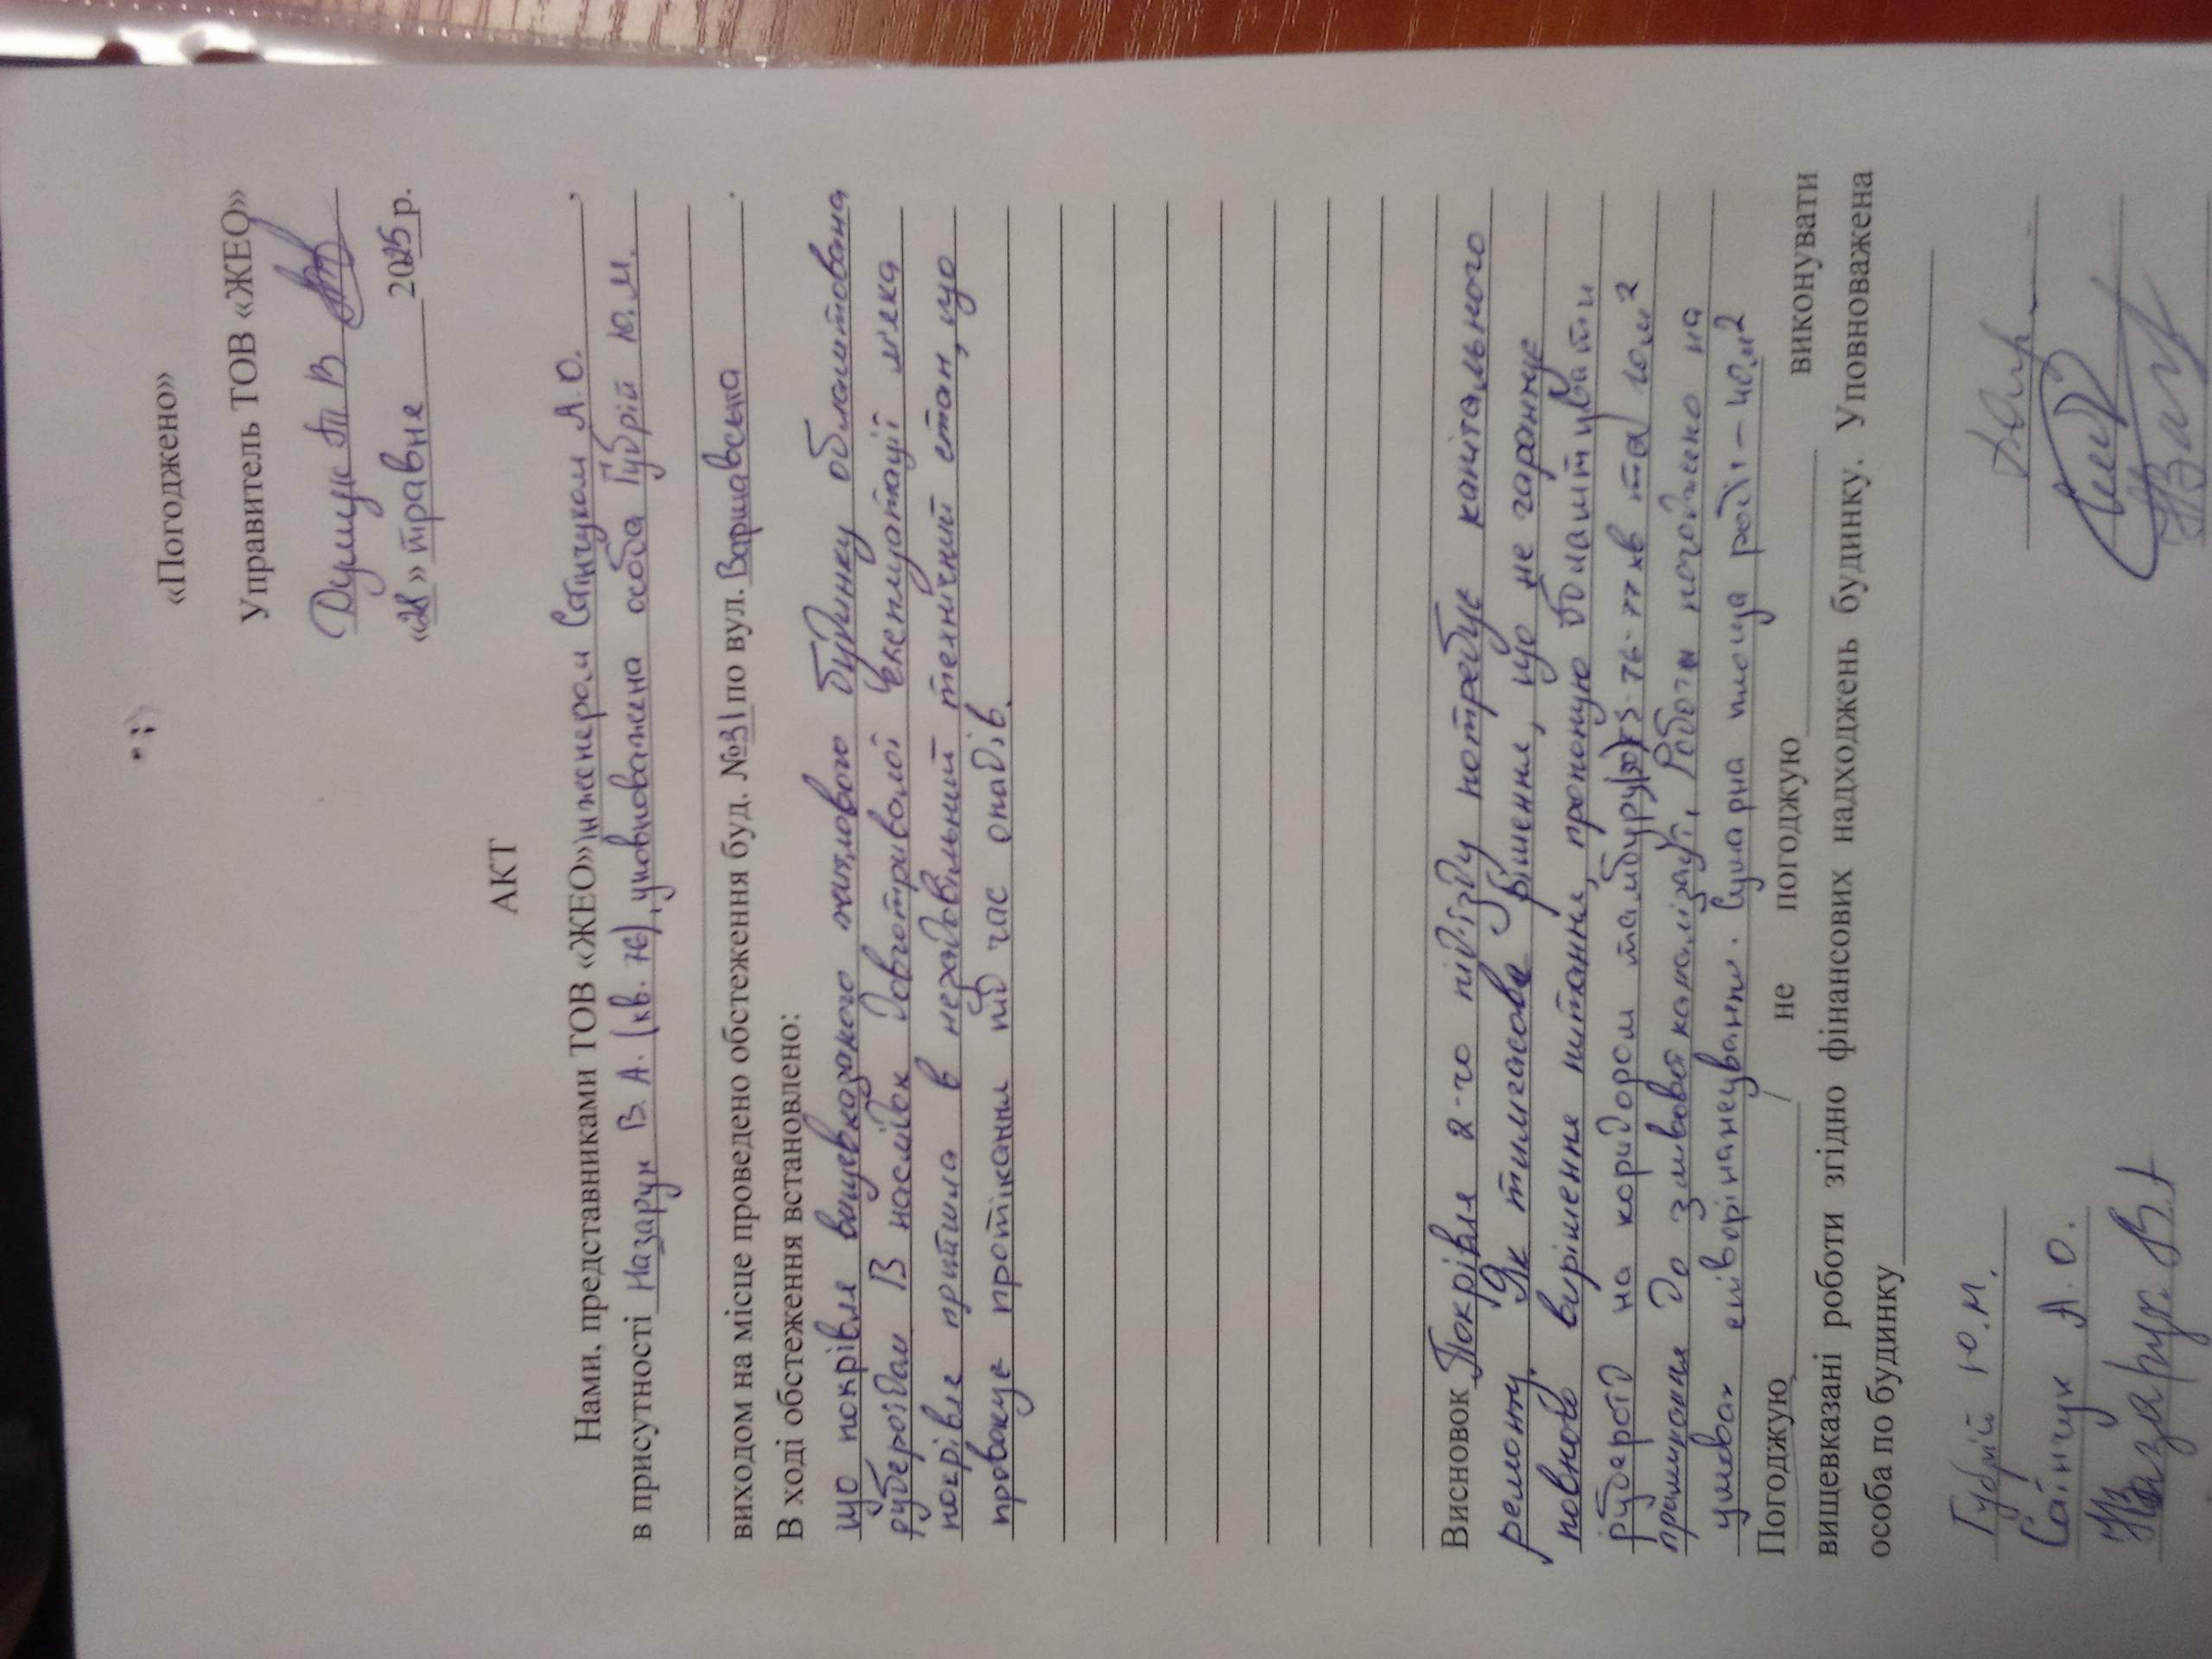 «Погоджено»
Управитель ТОВ «ЖЕО»
Т В
«28» травня 2025 р.
АКТ
Нами, представниками ТОВ «ЖЕО» інженером Саінчуком А.О.,
в присутності Назарук В. А. (кв. 76), уповноважена особа Губрій Ю.М.
виходом на місце проведено обстеження буд. №31 по вул. Варшавська.
В ході обстеження встановлено:
що покрівля вищевказаного житлового будинку облаштована
рубероїдом В наслідок довготривалої експлуатації м'яка
покрівля прийшла в незадовільний технічний стан, що
провокує протікання під час опадів.
Висновок Покрівля 2-го під'їзду потребує капітального
ремонту. Як тимчасове рішення, що не гарантує
повного вирішення питання, пропоную облаштувати
рубероїд на коридором тамбуру (30) 75-76-77 кв та 10 м2
примикання до зливової каналізації, Роботи погоджено на
умовах співфінансування. Сумарна площа робіт – 40 м2
Погоджую / не погоджую виконувати
вищевказані роботи згідно фінансових надходжень будинку. Уповноважена
особа по будинку
Губрій Ю.М.
Саінчук А.О.
Назарук В.А